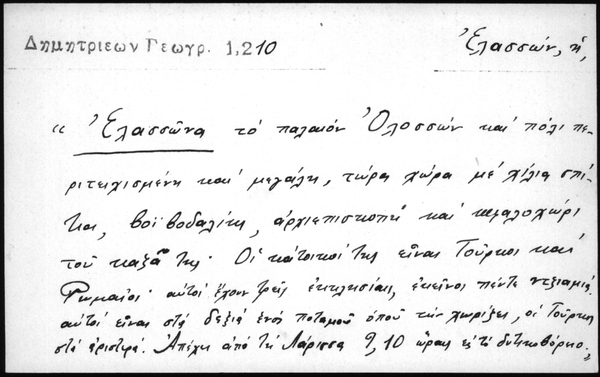 Δημητριεων Γεωγρ. 1,210
Ἐλασσών, ἡ,
" Ἐλασσῶνα τό παλαιόν Ὀλοσσών καί πόλι πε-
ριτειχισμένη καί μεγάλη, τώρα χώρα μέ χίλια σπί-
τια, βοϊβοδαλίκι, ἀρχιεπισκοπή καί κεφαλοχώρι
τοῦ καζᾶ της· Οἱ κάτοικοί της εἶναι Τοῦρκοι καί
Ρωμαῖοι· αὐτοί ἔχουν τρεῖς ἐκκλησίαις, ἐκεῖνοι πέντε ντζιαμιά.
αὐτοί εἶναι στά δεξιά ἑνός ποταμοῦ ὁπού τήν χωρίζει, οἱ Τοῦρκοι
στά ἀριστερά. Ἀπέχει ἀπό τή Λάρισσα 9, 10 ὥρας εἰς τό δυτικοβόρειο."